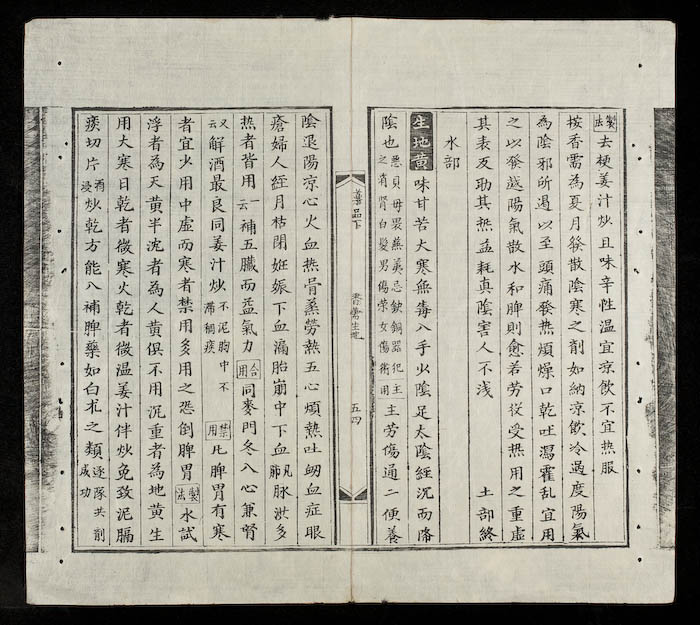 製法去梗姜汁炒且味辛性温宜凉飲不宜热服
按香需為夏月發散陰寒之剤如納凉飲冷過度陽氣
為陰邪所遏以至頭痛發热煩燥口乾吐瀉霍乱宜用
之以發越陽氣散水和脾則愈若劳役受热用之重虚
其表反助其热益耗真陰害人不浅 土部終
水部
生地黄味甘苦大寒無毒入手少陰足太陰經沉而降
陰也惡貝母畏蕪荑忌鉄銅器犯主之消腎白髮男傷荣女傷術用主劳傷通二便養
藥品下
香薷生地
五四
陰退陽凉心火血热骨蒸劳熱五心煩熱吐衂血症眼
瘡婦人經月枯閉姙娠下血漏胎崩中下血凡脉洪多
热者皆用一云補五臓而益氣力合用同麥門冬入心兼腎
又云解酒最良同姜汁炒不泥胸中不滞稠痰禁用
者宜少用中虚而寒者禁用多用之恐倒脾胃製法水試
浮者為天黄半沈者為人黄俱不用沉重者為地黄生
用大寒日乾者微寒火乾者微温姜汁伴炒免致泥膈
痰切片酒浸炒乾方能入補脾藥如白朮之類逐隊共剤成功